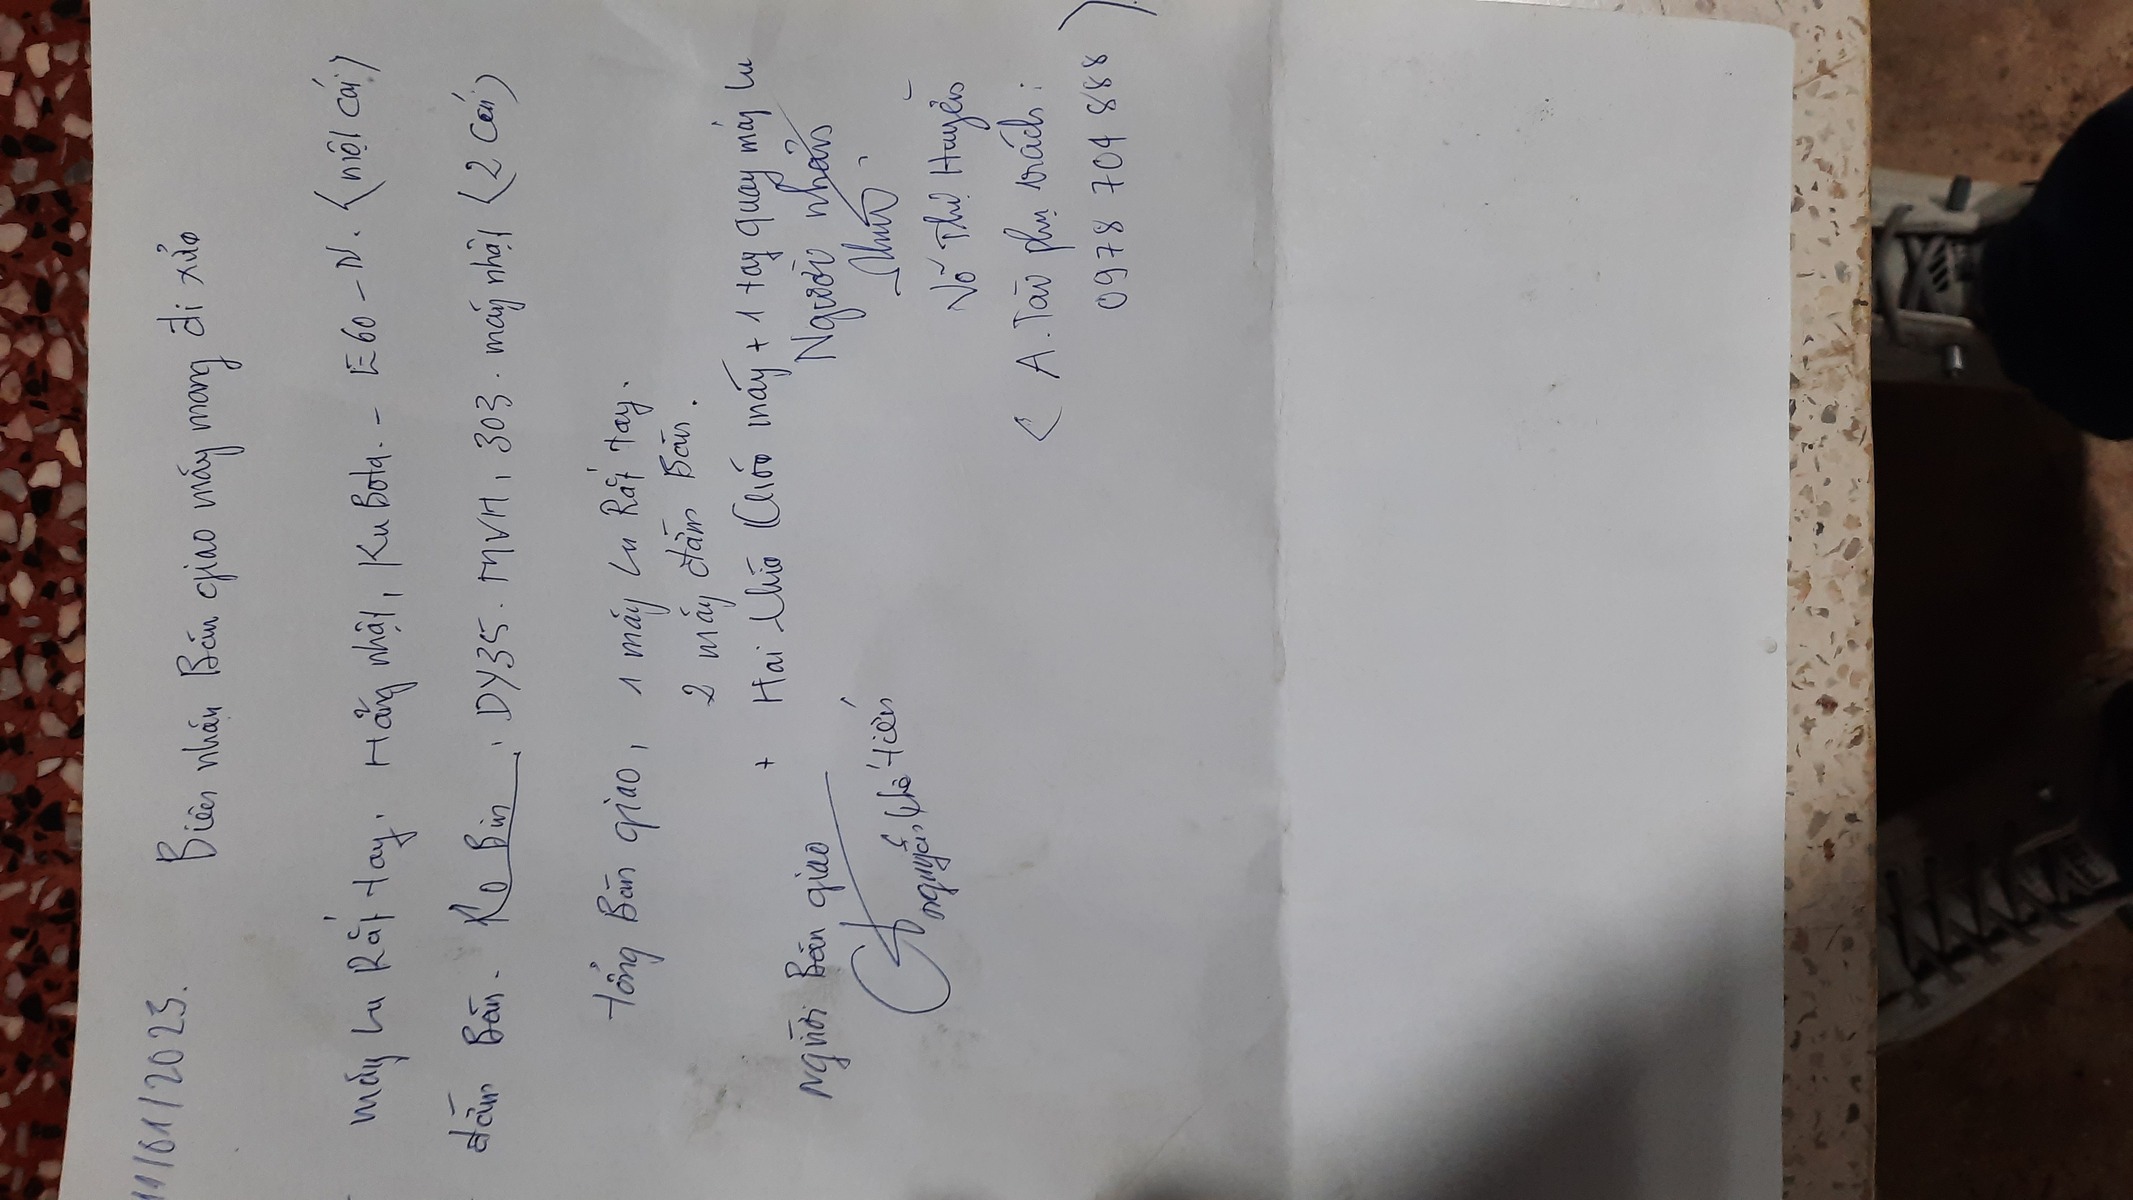 11/01/2023. Biên nhận Bàn giao máy mang đi sửa
máy Lu Rắt tay, Hãng nhật, KuBota. - E60 - N. (một cái)
đầm Bàn. RoBin, DY35. MVH, 303. máy nhật (2 cái)
tổng Bàn giao, 1 máy Lu Rắt tay.
2 máy đầm Bàn.
+ Hai chìa khóa máy + 1 tay quay máy Lu
Người Bàn giao
Người nhận
nguyễn thế tiến
Võ Thị Huyền
( A. Tài phụ trách:
0978 701 888 ).